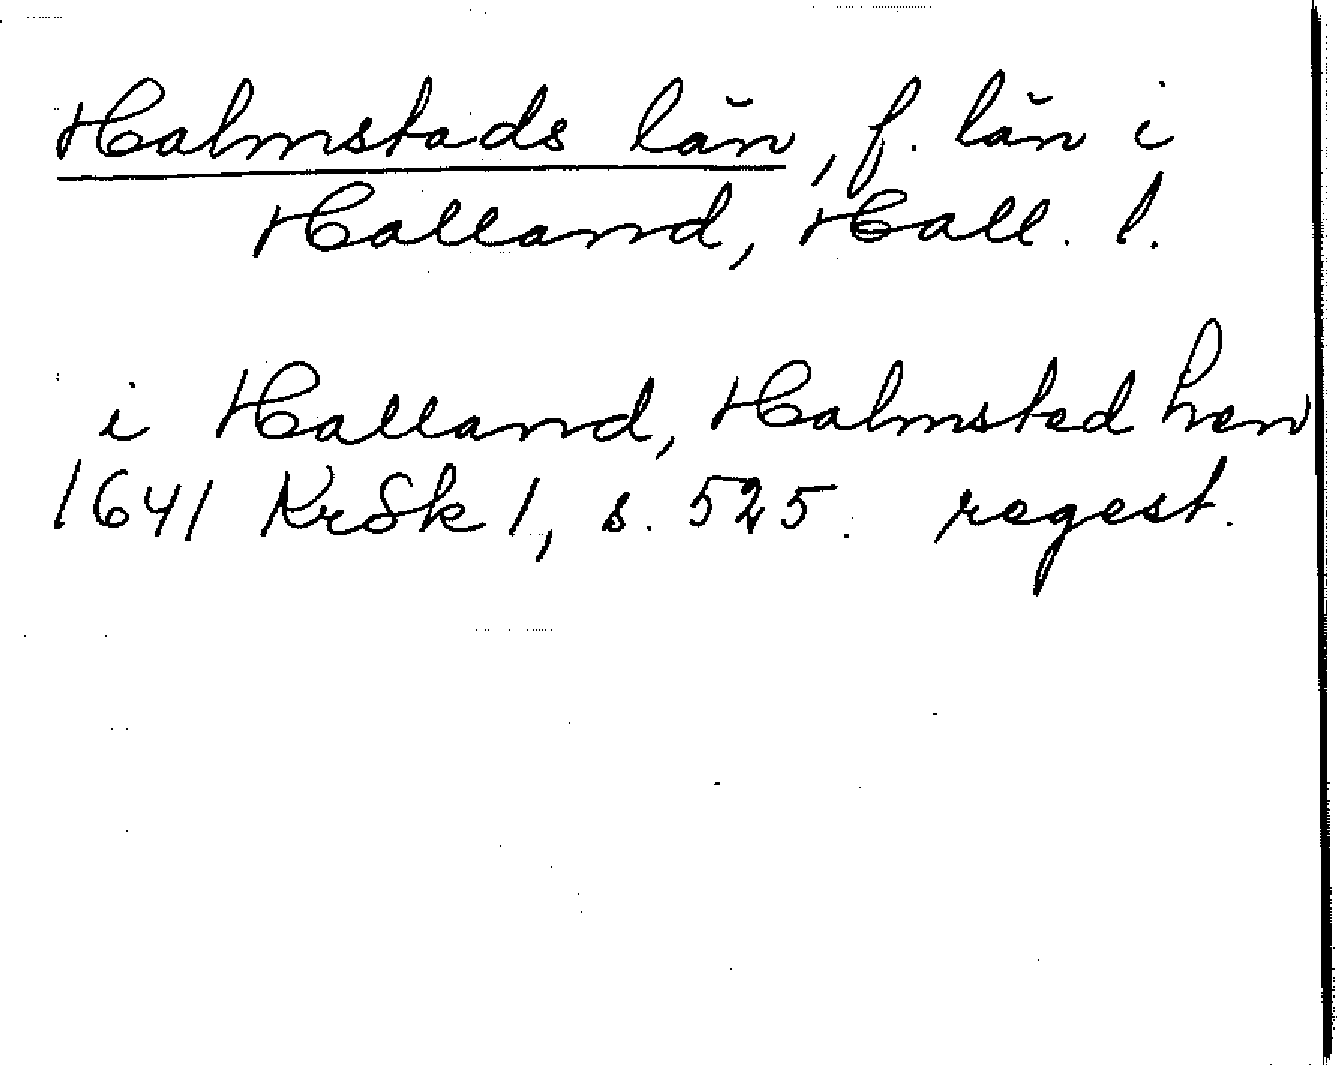 Halmstads län, f. län i
Halland, Hall. l.
i Halland, Halmsted
1641 KrSk 1, s. 525. regest.